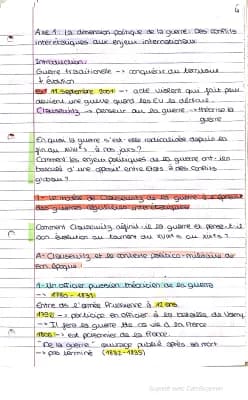 4
Axe 1: la dimension politique de la guerre: Des conflits
interétatiques aux enjeux internationaux
Introduction:
Guerre traditionnelle --> conquérir du territoire
+ évolution
11 septembre 2001 --> acte violent qui fait peur
devient une guerre quand les EU la déclare.
Clausewitz --> penseur sur la guerre --> théorise la
guerre
En quoi la guerre s'est-elle radicalisée depuis la
fin du XVIIIe s. à nos jours?
Comment les enjeux politiques de la guerre ont-ils
basculé d'une opposition entre Etats à des conflits
globaux?
I- Le modèle de Clausewitz de la guerre à
des guerres interétatiques
Comment Clausewitz définit-il la guerre et pense-t-il
son évolution au tournant du XVIIIe s. au XIXe s.?
A- Clausewitz et le contexte politico-militaire de
son époque:
1- Un officier prussien théoricien de la guerre
--> 1780 - 1831:
Entre ds l'armée Prussienne à 12 ans
1792 --> participe en officier à la bataille de Valmy.
--> Il fera la guerre de à la France
1806: --> est prisonnier de la France.
"De la guerre" ouvrage publié après sa mort
--> pas terminé (1832-1835)